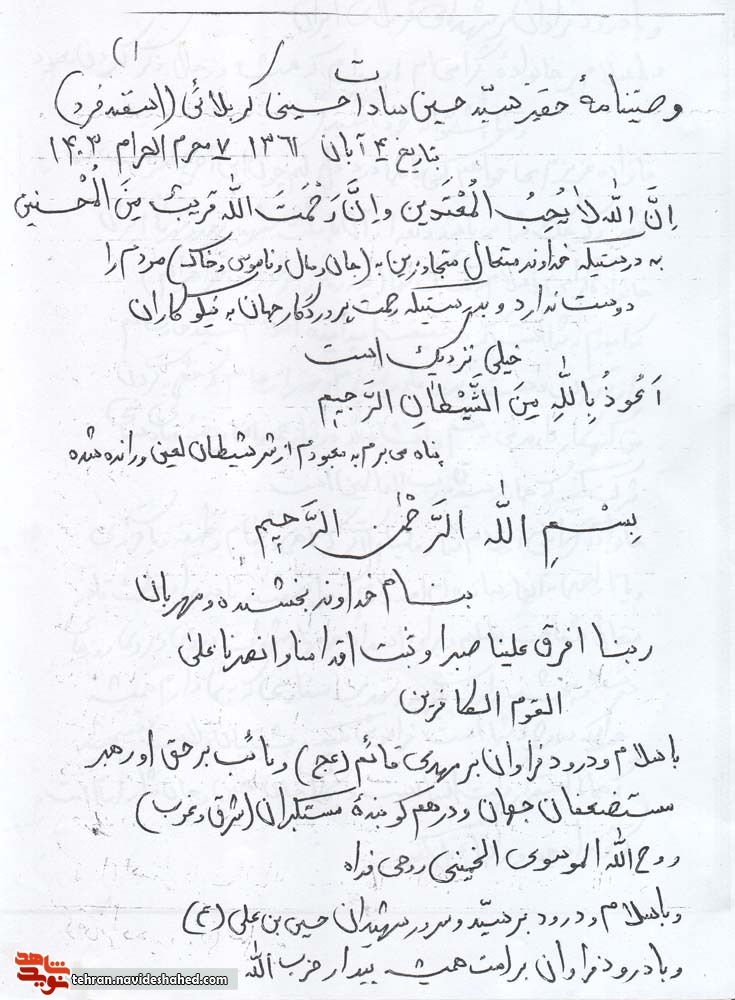 (۱
وصیتنامهٔ حقیر سیّد حسین سادات حسینی کربلائی (اسفند فرد)
تاریخ ۴ آبان ۱۳۶۱ ۷ محرم الحرام ۱۴۰۳
اِنَّ اللّٰهَ لاٰ یُحِبُ الْمُعْتَدین وَ اِنَّ رَحْمَتَ اللّٰه قَریبٌ مِنَ الْمُحْسنین
به درستیکه خداوند متعال متجاوزین به (جان و مال و ناموس و خاک) مردم را
دوست ندارد و بدرستیکه رحمت پروردگار جهان به نیکوکاران
خیلی نزدیک است
اَعُوذُ بِاللّٰهِ مِنَ الشَّیْطٰانِ الرَّجیم
پناه می برم به معبودم از شر شیطان لعین و رانده شده
بِسْمِ اللّٰه الرَّحْمٰن الرَّحیم
بنام خداوند بخشنده و مهربان
ربنا افرق علینا صبرا و ثبت اقدامنا و انصرنا علی
القوم الکافرین
با سلام و درود فراوان بر مهدی قائم (عج) و نائب بر حق او رهبر
مستضعفان جهان و درهم کوبندهٔ مستکبران (شرق و غرب)
روح اللّٰه الموسوی الخمینی روحی فداه
و با سلام و درود بر سیّد و سرور شهیدان حسین بن علی (ع)
و با درود فراوان بر امت همیشه بیدار حزب اللّٰه
شاهد
نوید
tehran.navideshahed.com